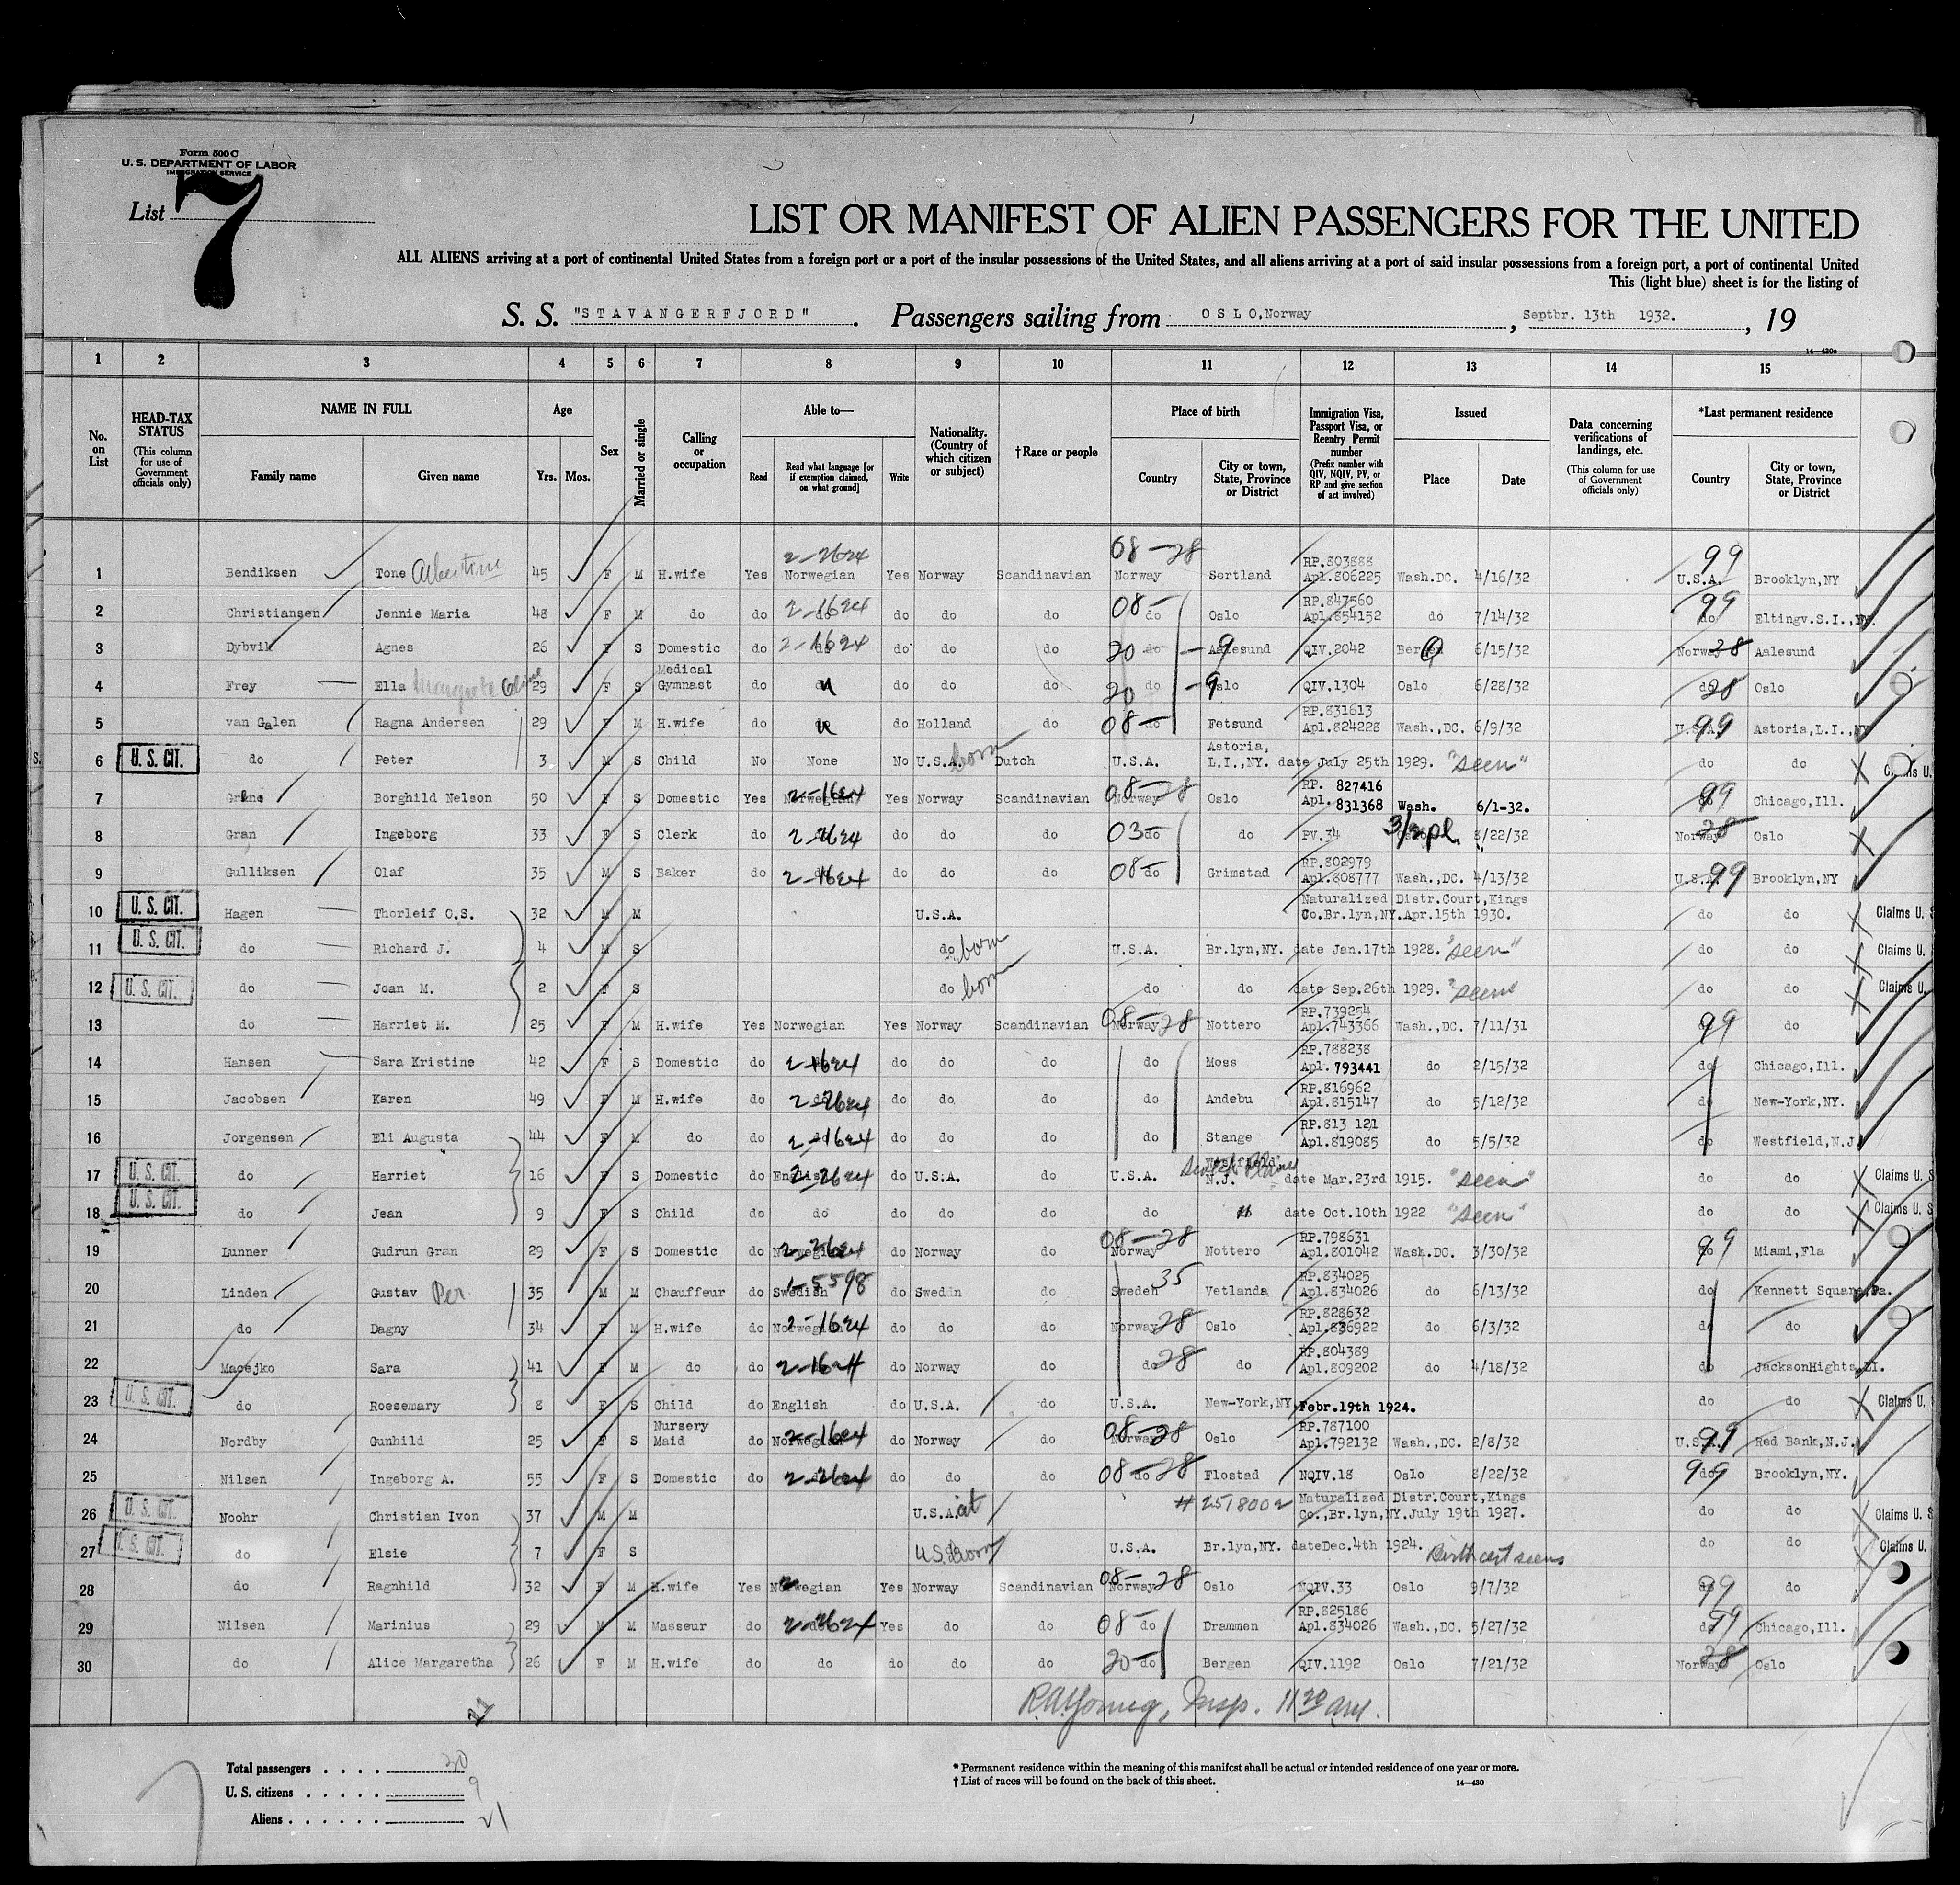 Form 500 C
U. S. DEPARTMENT OF LABOR
IMMIGRATION SERVICE
List 7
LIST OR MANIFEST OF ALIEN PASSENGERS FOR THE UNITED
ALL ALIENS arriving at a port of continental United States from a foreign port or a port of the insular possessions of the United States, and all aliens arriving at a port of said insular possessions from a foreign port, a port of continental United
This (light blue) sheet is for the listing of
S. S. "STAVANGERFJORD". Passengers sailing from OSLO, Norway, Septbr. 13th 1932., 19
14—430c
1 2 3 4 5 6 7 8 9 10 11 12 13 14 15
No. on List | HEAD-TAX STATUS (This column for use of Government officials only) | NAME IN FULL Family name Given name | Age Yrs. Mos. | Sex | Married or single | Calling or occupation | Able to— Read Read what language [or if exemption claimed, on what ground] Write | Nationality. (Country of which citizen or subject) | †Race or people | Place of birth Country City or town, State, Province or District | Immigration Visa, Passport Visa, or Reentry Permit number (Prefix number with QIV, NQIV, PV, or RP and give section of act involved) | Issued Place Date | Data concerning verifications of landings, etc. (This column for use of Government officials only) | *Last permanent residence Country City or town, State, Province or District
1 Bendiksen Tone Albertine 45 F M H.wife Yes Norwegian 2-2624 Yes Norway Scandinavian Norway 08-28 Sortland RP.803888 Apl.806225 Wash.DC. 4/16/32 U.S.A. 99 Brooklyn,NY
2 Christiansen Jennie Maria 48 F M do do do 2-1624 do do do do 08- Oslo RP.847560 Apl.854152 do 7/14/32 do 99 Eltingv.S.I.,NY.
3 Dybvik Agnes 26 F S Domestic do do 2-1624 do do do do 20 - 9 Aalesund QIV.2042 Bergen 6/15/32 Norway 28 Aalesund
4 Frey Ella Margrete 29 F S Medical Gymnast do do do do do do 20 - 9 Oslo QIV.1304 Oslo 6/28/32 do 28 Oslo
5 van Galen Ragna Andersen 29 F M H.wife do do do Holland do do 08- Fetsund RP.831613 Apl.824228 Wash.,DC. 6/9/32 U.S.A. 99 Astoria,L.I.,NY
6 U. S. CIT. do Peter 3 M S Child No None No U.S.A. born Dutch U.S.A. Astoria, L.I.,NY. date July 25th 1929. "seen" do do Claims U.
7 Grane Borghild Nelson 50 F S Domestic Yes Norwegian 2-1624 Yes Norway Scandinavian Norway 08-28 Oslo RP. 827416 Apl. 831368 Wash. 6/1-32. do 99 Chicago,Ill.
8 Gran Ingeborg 33 F S Clerk do do 2-2624 do do do do 03 do PV.34 3/2 pl. 8/22/32 Norway 28 Oslo
9 Gulliksen Olaf 35 M S Baker do do 2-1624 do do do do 08- Grimstad RP.802979 Apl.808777 Wash.,DC. 4/13/32 U.S.A. 99 Brooklyn,NY
10 U. S. CIT. Hagen Thorleif O.S. 32 M M U.S.A. Naturalized Distr.Court,Kings Co.Br.lyn,NY.Apr.15th 1930. do do Claims U. S
11 U. S. CIT. do Richard J. 4 M S do born U.S.A. Br.lyn,NY. date Jan.17th 1928. "seen" do do Claims U. S
12 U. S. CIT. do Joan M. 2 F S do born do do date Sep.26th 1929. "seen" do do Claims U.
13 do Harriet M. 25 F M H.wife Yes Norwegian Yes Norway Scandinavian Norway 08-28 Nottero RP.739254 Apl.743366 Wash.,DC. 7/11/31 99 do
14 Hansen Sara Kristine 42 F S Domestic do do 2-1624 do do do do Moss RP.788238 Apl. 793441 do 2/15/32 do Chicago,Ill.
15 Jacobsen Karen 49 F M H.wife do do 2-2624 do do. do do Andebu RP.816962 Apl.815147 do 5/12/32 do New-York,NY.
16 Jorgensen Eli Augusta 44 F M do do do 2-1624 do do do do Stange RP.813 121 Apl.819085 do 5/5/32 do Westfield,N.J
17 U. S. CIT. do Harriet 16 F S Domestic do English 2-2624 do U.S.A. do U.S.A. Westfield Scotch Plains N.J. date Mar.23rd 1915. "seen" do do Claims U. S
18 U. S. CIT. do Jean 9 F S Child do do do do do do " date Oct.10th 1922 "seen" do do Claims U. S
19 Lunner Gudrun Gran 29 F S Domestic do Norwegian 2-2624 do Norway do Norway 08-28 Nottero RP.798631 Apl.801042 Wash.DC. 3/30/32 do 99 Miami,Fla
20 Linden Gustav Per 35 M M Chauffeur do Swedish 1-5598 do Swedin do Sweden 35 Vetlanda RP.834025 Apl.834026 do 6/13/32 do Kennett Square,Pa.
21 do Dagny 34 F M H.wife do Norwegian 2-1624 do do do Norway 28 Oslo RP.828632 Apl.836922 do 6/3/32 do do
22 Macejko Sara 41 F M do do do 2-1624 do Norway do do 28 do RP.804389 Apl.809202 do 4/18/32 do JacksonHights,LI.
23 U. S. CIT. do Roesemary 8 F S Child do English do U.S.A. do U.S.A. New-York,NY. Febr.19th 1924. do do Claims U. S
24 Nordby Gunhild 25 F S Nursery Maid do Norwegian 2-1624 do Norway do Norway 08-28 Oslo RP.787100 Apl.792132 Wash.,DC. 2/8/32 U.S.A. 99 Red Bank,N.J.
25 Nilsen Ingeborg A. 55 F S Domestic do do 2-2624 do do do do 08-28 Flostad NQIV.18 Oslo 8/22/32 do 99 Brooklyn,NY.
26 U. S. CIT. Noohr Christian Ivon 37 M M U.S.A. cit #2518002 Naturalized Distr.Court,Kings Co.,Br.lyn,NY.July 19th 1927. do do Claims U. S
27 U. S. CIT. do Elsie 7 F S U.S. Born U.S.A. Br.lyn,NY. dateDec.4th 1924. Birth cert seen do do Claims U.
28 do Ragnhild 32 F M H.wife Yes Norwegian Yes Norway Scandinavian Norway 08-28 Oslo NQIV.33 Oslo 9/7/32 do 99 do
29 Nilsen Marinius 29 M M Masseur do do 2-2624 Yes do do do 08- Drammen RP.825186 Apl.834026 Wash.,DC. 5/27/32 do 99 Chicago,Ill.
30 do Alice Margaretha 26 F M H.wife do do do do do do 20- Bergen QIV.1192 Oslo 7/21/32 Norway 28 Oslo
R.A. Young, Insp. 11 20 AM.
Total passengers . . . . 30
U. S. citizens . . . . . 9
Aliens . . . . . . 21
* Permanent residence within the meaning of this manifest shall be actual or intended residence of one year or more.
† List of races will be found on the back of this sheet.
14—430